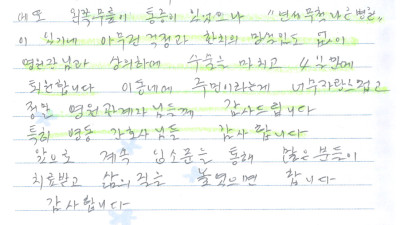 왼쪽무릎이 통증이 있었으나 "연세무척나은병원"
이 있기에 아무런 걱정과 한치의 망설임도 없이
병원관님과 상의하에 수술을 마치고 4일만에
퇴원합니다 이동네에 주민이라는게 너무자랑스럽고
정말 병원관계자님들께 감사드립니다
특히 병동 간호사님들 감사합니다
앞으로 계속 입소문을 통해 많은분들이
치료받고 삶의질을 높였으면 합니다
감사합니다